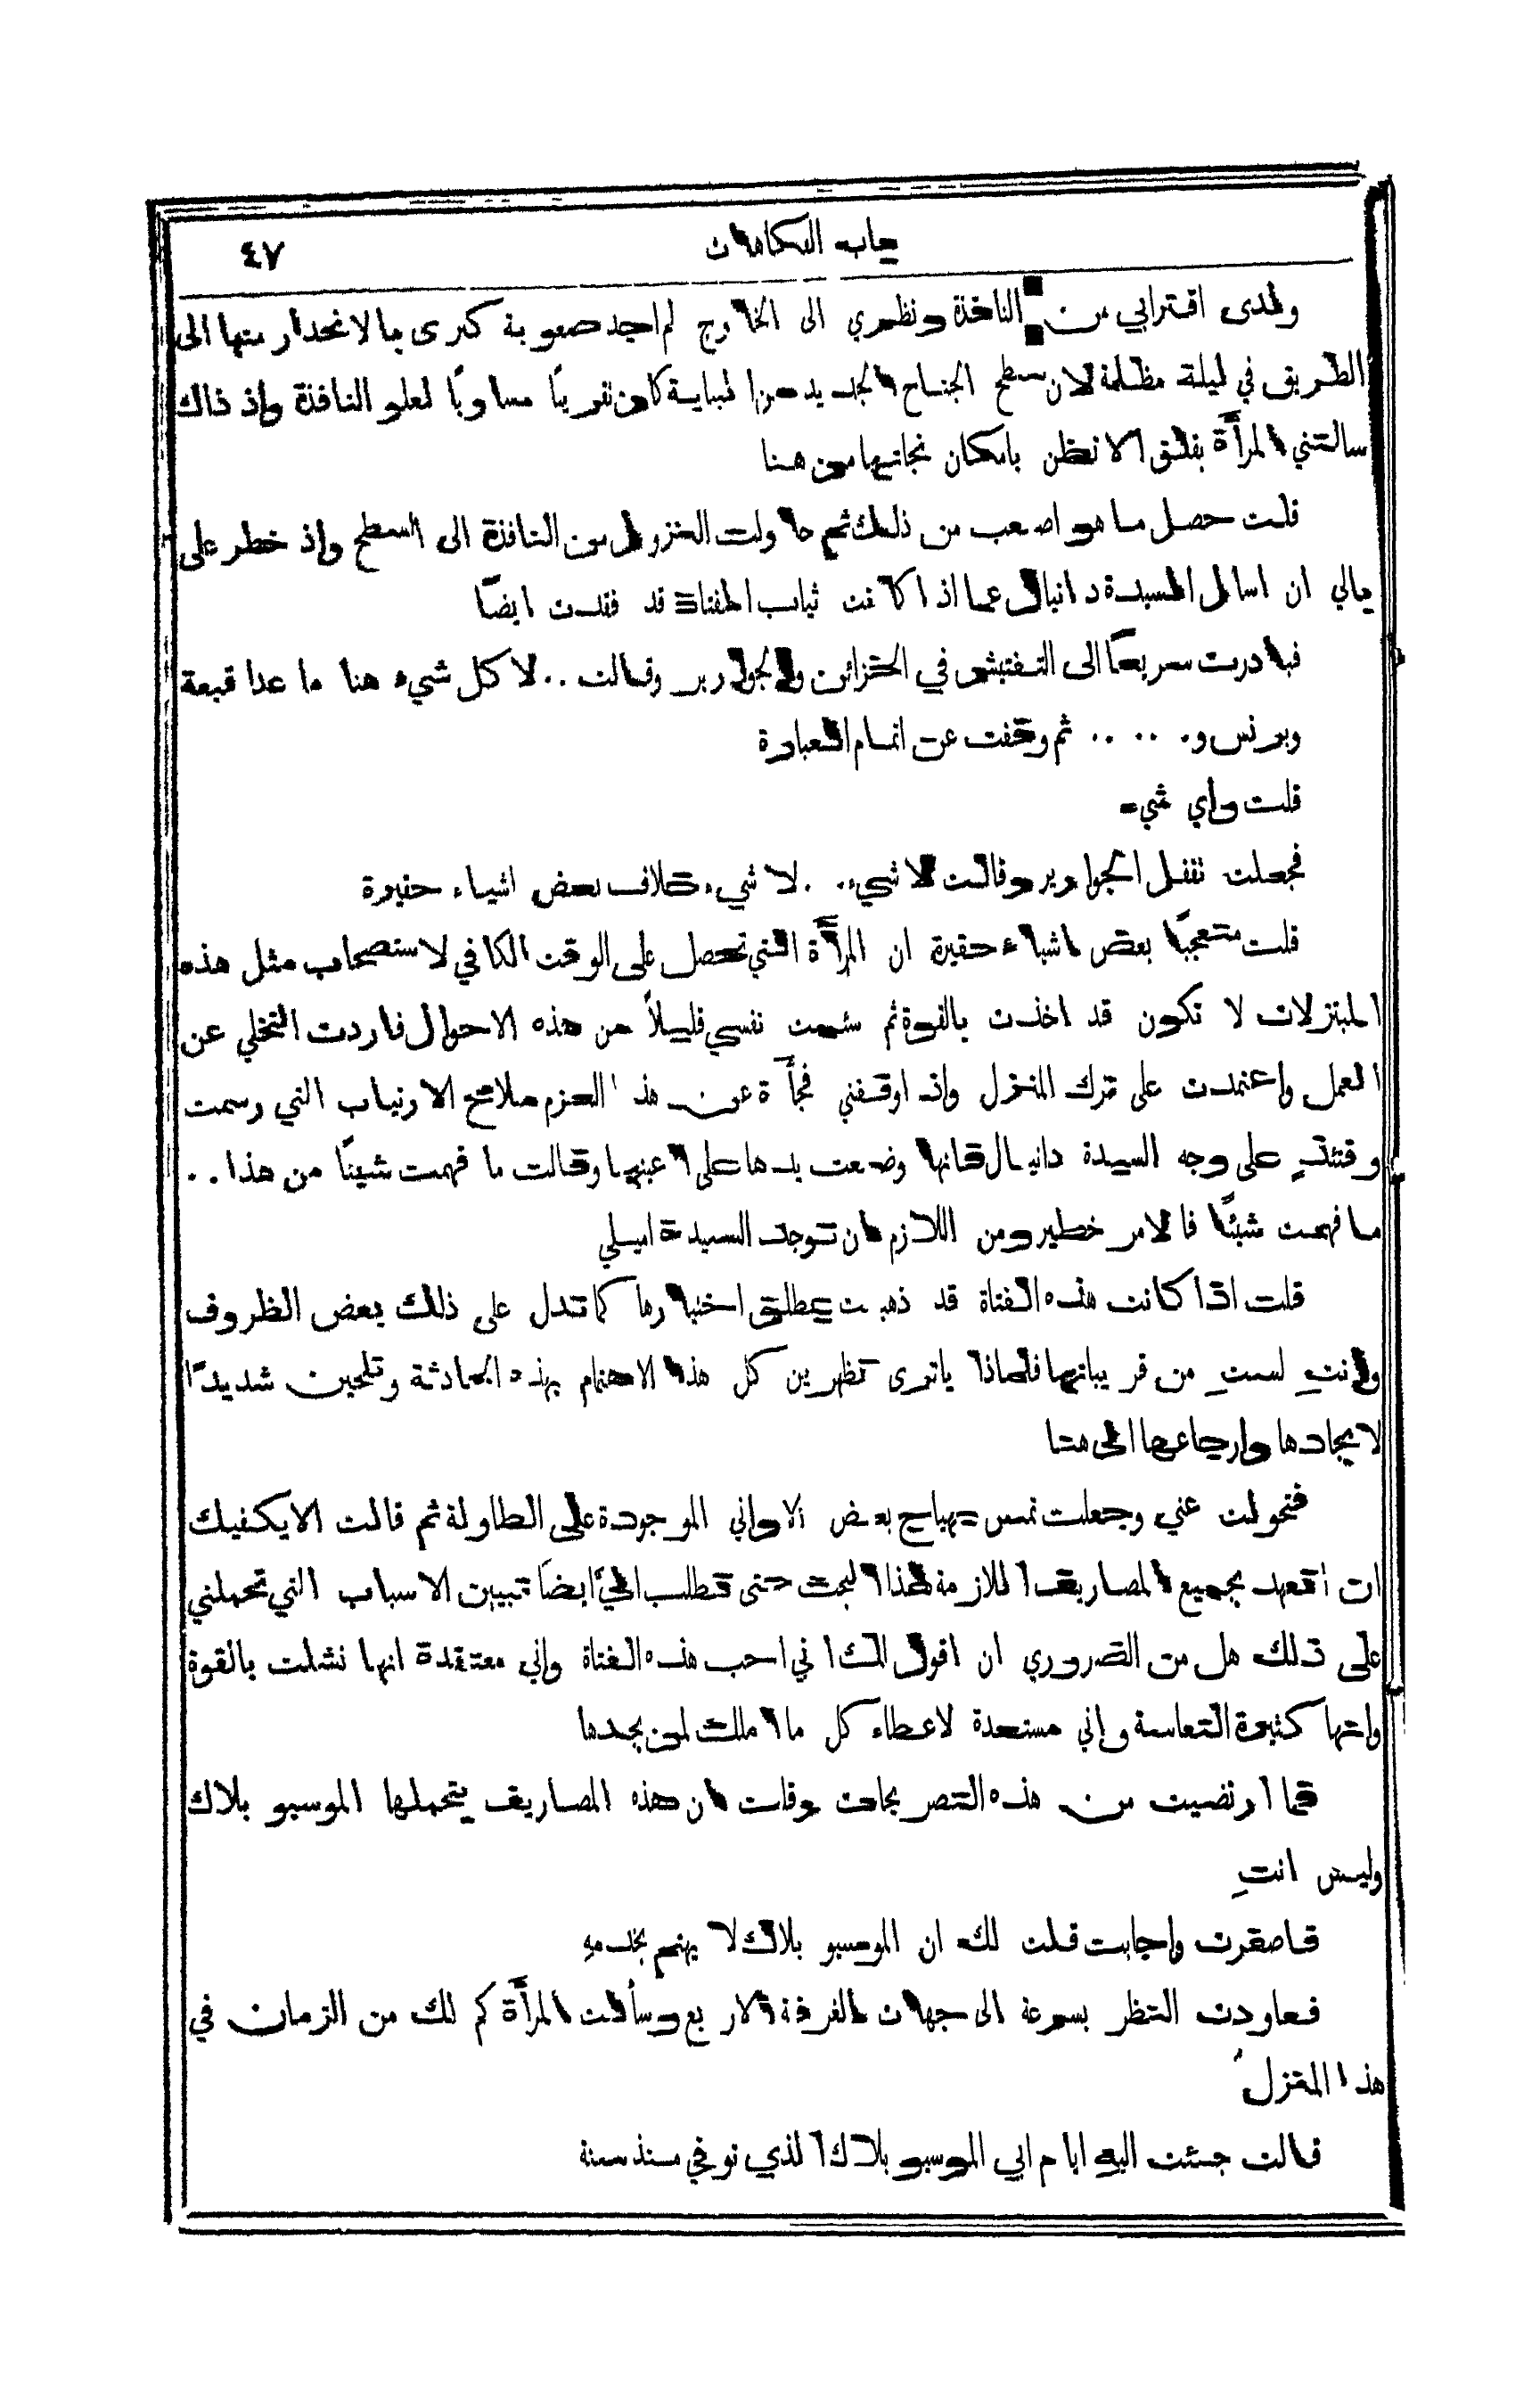 باب الفكاهات ٤٧
ولدى اقترابي من النافذة ونظري الى الخارج لم اجد صعوبة كبرى بالانحدار منها الى
الطريق في ليلة مظلمة لان سطح الجناح الجديد من البناية كان نقريبًا مساويًا لعلو النافذة وإذ ذاك
سالتني المرأة بقلق ألا نظن بامكان نجاتها من هنا
قلت حصل ما هو اصعب من ذلك ثم حاولت النزول من النافذة الى السطح وإذ خطر على
بالي ان اسال السيدة دانيال عما اذا كانت ثياب الفتاة قد فقدت ايضًا
فبادرت سريعًا الى التفتيش في الخزائن والجوارير وقالت .. لا كل شيء هنا ما عدا قبعة
وبرنس و. .. .. ثم وقفت عن اتمام العبارة
قلت وأي شيء
فجعلت نقفل الجوارير وقالت لا شيء. .لا شيء خلاف بعض اشياء حقيرة
قلت متعجبًا بعض اشياء حقيرة ان المرأة التي تحصل على الوقت الكافي لاستصحاب مثل هذه
المبتزلات لا تكون قد اخذت بالقوة ثم سئمت نفسي قليلاً من هذه الاحوال فاردت التخلي عن
العمل واعتمدت على ترك المنزل وانه اوقفني فجأة عن هذا العزم ملامح الارتياب التي رسمت
وقتئذٍ على وجه السيدة دانيال فانها وضعت يدها على اعينها وقالت ما فهمت شيئًا من هذا ..
ما فهمت شيئًا فالامر خطير ومن اللازم ان توجد السيدة اميلي
قلت اذا كانت هذه الفتاة قد ذهبت بمطلق اختيارها كما تدل على ذلك بعض الظروف
وانتِ لستِ من قريباتها فلماذا ياترى تظهرين كل هذا الاهتمام بهذه الحادثة وتلحين شديدًا
لايجادها وارجاعها الى هنا
فتحولت عني وجعلت تمس بهياج بعض الاواني الموجودة على الطاولة ثم قالت الا يكفيك
ان اتعهد بجميع المصاريف اللازمة لهذا البحث حتى تطلب اليَّ ايضًا تبيين الاسباب التي تحملني
على ذلك هل من الضروري ان اقول لك اني احب هذه الفتاة واني معتقدة انها نشلت بالقوة
وانها كثيرة التعاسة واني مستعدة لاعطاء كل ما املك لمن يجدها
فما ارتضيت من هذه التصريحات وقلت ان هذه المصاريف يتحملها الموسيو بلاك
وليس انتِ
فاصفرت واجابت قلت لك ان الموسيو بلاك لا يهتم بخدمهِ
فعاودت النظر بسرعة الى جهات الغرفة الاربع وسألت المرأة كم لك من الزمان في
هذا المنزل
قالت جئت اليه ايام ابي الموسيو بلاك الذي توفي منذ سنة